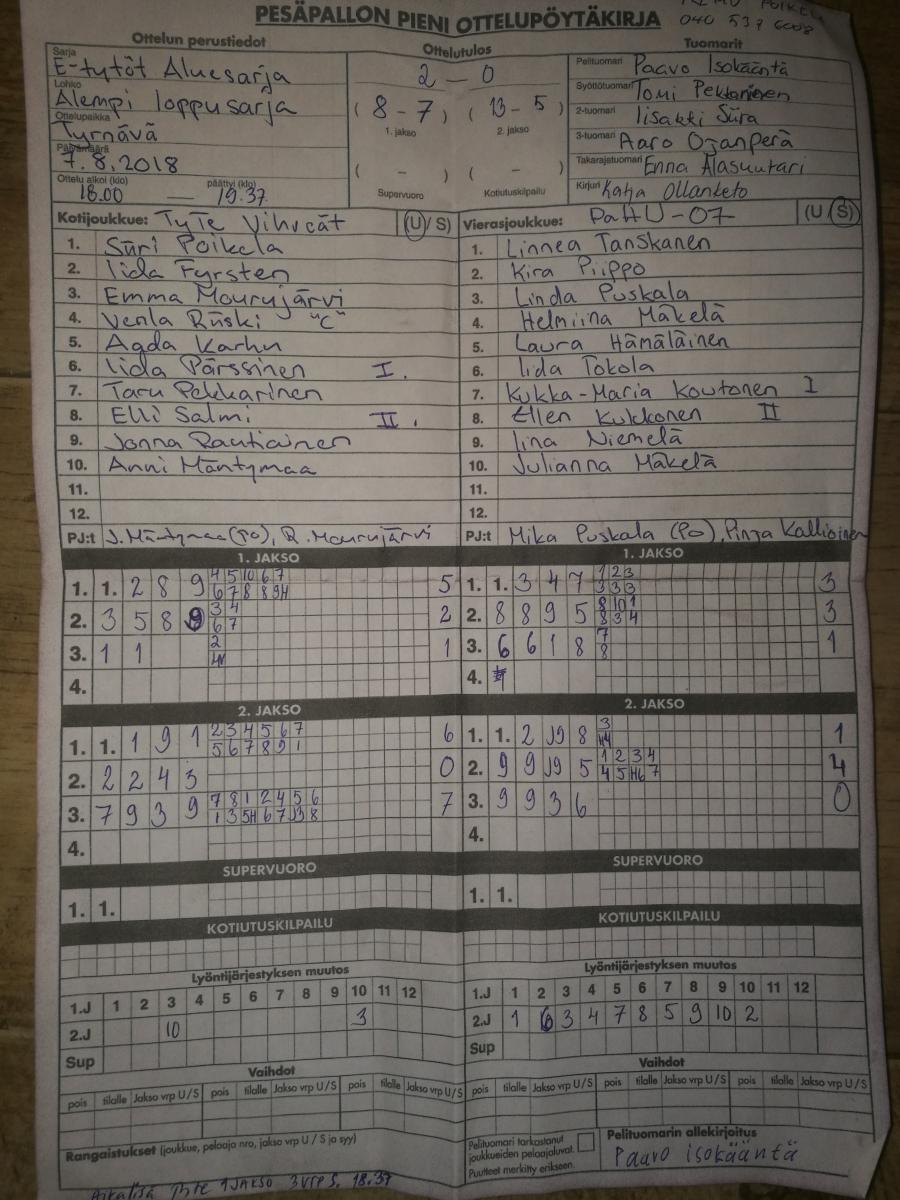 PESÄPALLON PIENI OTTELUPÖYTÄKIRJA
040 537 6008
Ottelun perustiedot
Sarja
E-tytöt Aluesarja
Lohko
Alempi loppusarja
Ottelupaikka
Tyrnävä
Päivämäärä
7.8.2018
Ottelu alkoi (klo) päättyi (klo)
18.00 — 19.37
Ottelutulos
2 - 0
( 8 - 7 ) ( 13 - 5 )
1. jakso 2. jakso
( - ) ( - )
Supervuoro Kotiutuskilpailu
Tuomarit
Pelituomari Paavo Isokääntä
Syöttötuomari Tomi Pekkarinen
2-tuomari Iisakki Siira
3-tuomari Aaro Ojanperä
Takarajatuomari Enna Alasuutari
Kirjuri Katja Ollanketo
Kotijoukkue: TyTe Vihreät (U / S)
1. Siiri Poikela
2. Iida Fyrsten
3. Emma Mourujärvi
4. Venla Riiski "C"
5. Agda Karhu
6. Iida Pärssinen I.
7. Taru Pekkarinen
8. Elli Salmi II.
9. Jonna Rautiainen
10. Anni Mäntymaa
11.
12.
PJ:t J. Mäntymaa (PO), R. Mourujärvi
Vierasjoukkue: PattU-07 (U / S)
1. Linnea Tanskanen
2. Kira Piippo
3. Linda Puskala
4. Helmiina Mäkelä
5. Laura Hämäläinen
6. Iida Tokola
7. Kukka-Maria Koutonen I
8. Ellen Kukkonen II
9. Iina Niemelä
10. Julianna Mäkelä
11.
12.
PJ:t Mika Puskala (PO), Pinja Kallioinen
1. JAKSO
1. 1. 2 8 9 4 5 10 6 7 5
6 7 8 8 9H
2. 3 5 8 9 3 4 2
6 7
3. 1 1 2 1
4.
1. JAKSO
1. 1. 3 4 7 1 2 3 3
3 3 3
2. 8 8 9 5 8 10 1 3
8 3 4
3. 6 6 1 8 7 1
8
4.
2. JAKSO
1. 1. 1 9 1 2 3 4 5 6 7 6
5 6 7 8 9 1
2. 2 2 4 3 0
3. 7 9 3 9 7 8 1 2 4 5 6 7
1 3 5H 6 7 J3 8
4.
2. JAKSO
1. 1. 2 J9 8 3 1
H4
2. 9 9 J9 5 1 2 3 4 4
4 5 H6 7
3. 9 9 3 6 0
4.
SUPERVUORO
1. 1.
SUPERVUORO
1. 1.
KOTIUTUSKILPAILU
KOTIUTUSKILPAILU
Lyöntijärjestyksen muutos
1.J 1 2 3 4 5 6 7 8 9 10 11 12
2.J 10 3
Sup
Lyöntijärjestyksen muutos
1.J 1 2 3 4 5 6 7 8 9 10 11 12
2.J 1 6 3 4 7 8 5 9 10 2
Sup
Vaihdot
pois tilalle Jakso vrp U/S pois tilalle Jakso vrp U/S pois tilalle Jakso vrp U/S
Vaihdot
pois tilalle Jakso vrp U/S pois tilalle Jakso vrp U/S pois tilalle Jakso vrp U/S
Rangaistukset (joukkue, pelaaja nro, jakso vrp U / S ja syy)
Aikalisä 1 JAKSO 3 vrp S. 18.37
Pelituomari tarkastanut
joukkueiden pelaajaluvat.
Puutteet merkitty erikseen.
Pelituomarin allekirjoitus
Paavo isokääntä